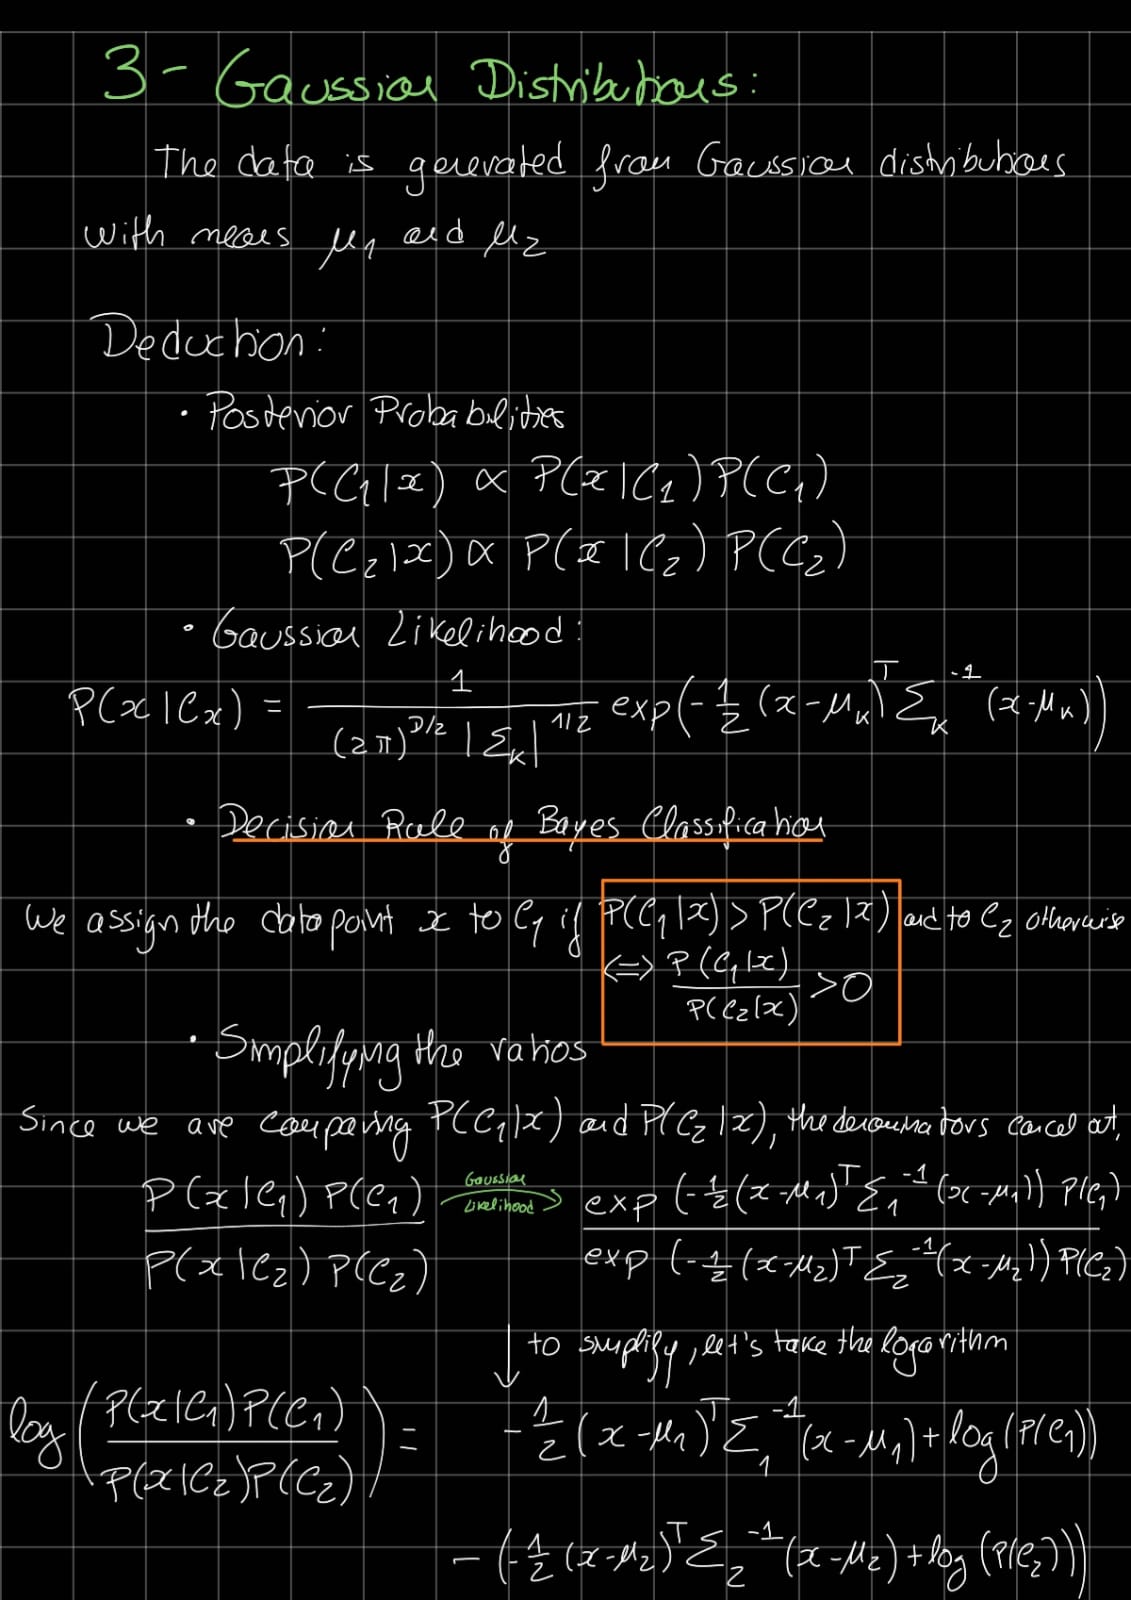 3 - Gaussian Distributions:
The data is generated from Gaussian distributions
with means μ₁ and μ₂
Deduction:
• Posterior Probabilities
P(C₁|x) ∝ P(x|C₁)P(C₁)
P(C₂|x) ∝ P(x|C₂) P(C₂)
• Gaussian Likelihood:
P(x|Cx) = 1 / ((2π)^(D/2) |Σ_K|^(1/2)) exp(-1/2 (x-μ_K)^T Σ_K^-1 (x-μ_K))
• Decision Rule of Bayes Classification
We assign the datapoint x to C₁ if P(C₁|x) > P(C₂|x) and to C₂ otherwise
⇔ P(C₁|x) / P(C₂|x) > 0
• Simplifying the ratios
Since we are comparing P(C₁|x) and P(C₂|x), the denominators cancel out,
P(x|C₁) P(C₁) / P(x|C₂) P(C₂) Gaussian Likelihood → exp(-1/2(x-μ₁)^T Σ₁^-1 (x-μ₁)) P(C₁) / exp(-1/2(x-μ₂)^T Σ₂^-1 (x-μ₂)) P(C₂)
↓ to simplify, let's take the logarithm
log(P(x|C₁)P(C₁) / P(x|C₂)P(C₂)) = -1/2 (x-μ₁)^T Σ₁^-1 (x-μ₁) + log(P(C₁))
- (-1/2 (x-μ₂)^T Σ₂^-1 (x-μ₂) + log(P(C₂)))